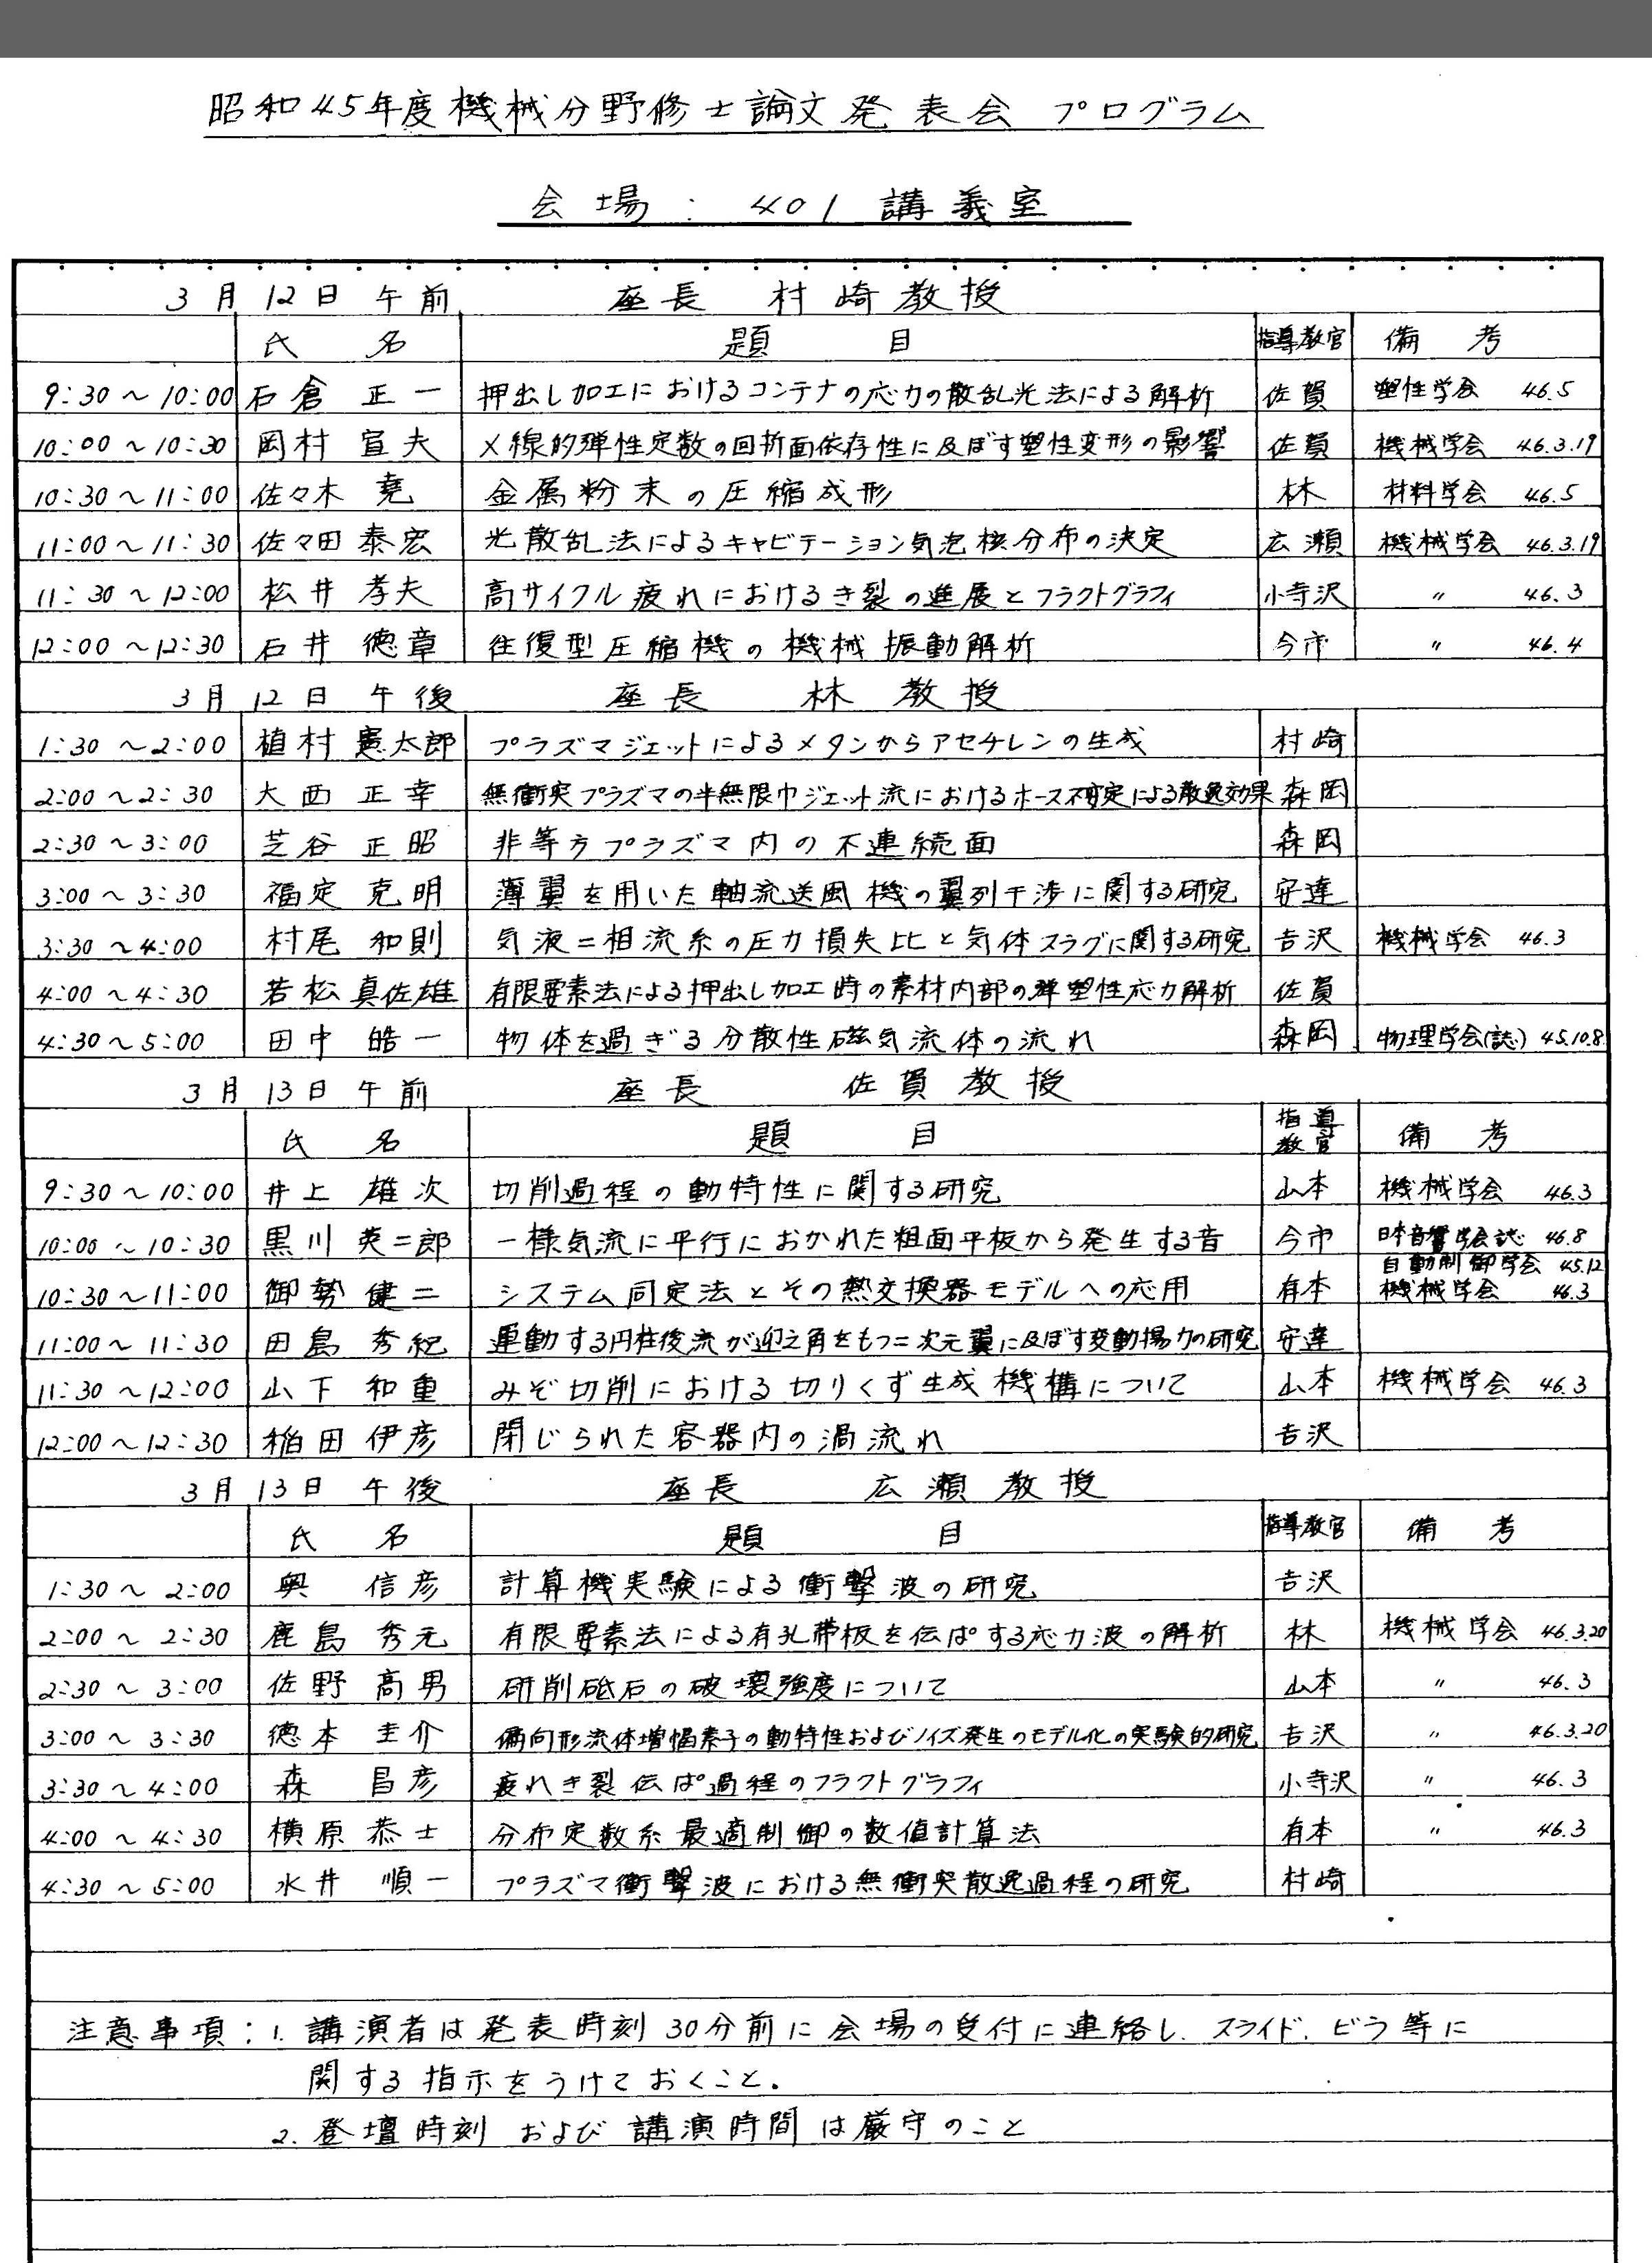 昭和45年度機械分野修士論文発表会 プログラム
会場: 401 講義室
3月12日 午前 座長 村崎教授
氏名 題目 指導教官 備考
9:30～10:00 石倉 正一 押出し加工におけるコンテナの応力の散乱光法による解析 佐賀 塑性学会 46.5
10:00～10:30 岡村 宣夫 X線的弾性定数の回折面依存性に及ぼす塑性変形の影響 佐賀 機械学会 46.3.19
10:30～11:00 佐々木 堯 金属粉末の圧縮成形 林 材料学会 46.5
11:00～11:30 佐々田 泰宏 光散乱法によるキャビテーション気泡核分布の決定 広瀬 機械学会 46.3.19
11:30～12:00 松井 孝夫 高サイクル疲れにおけるき裂の進展とフラクトグラフィ 小寺沢 〃 46.3
12:00～12:30 石井 徳章 往復型圧縮機の機械振動解析 今市 〃 46.4
3月12日 午後 座長 林 教授
1:30～2:00 植村 憲太郎 プラズマジェットによるメタンからアセチレンの生成 村崎
2:00～2:30 大西 正幸 無衝突プラズマの半無限巾ジェット流におけるホース不安定による散逸効果 森岡
2:30～3:00 芝谷 正昭 非等方プラズマ内の不連続面 森岡
3:00～3:30 福定 克明 薄翼を用いた軸流送風機の翼列干渉に関する研究 安達
3:30～4:00 村尾 和則 気液二相流系の圧力損失比と気体スラグに関する研究 吉沢 機械学会 46.3
4:00～4:30 若松 真佐雄 有限要素法による押出し加工時の素材内部の弾塑性応力解析 佐賀
4:30～5:00 田中 皓一 物体を過ぎる分散性磁気流体の流れ 森岡 物理学会(誌) 45.10.8
3月13日 午前 座長 佐賀教授
氏名 題目 指導教官 備考
9:30～10:00 井上 雄次 切削過程の動特性に関する研究 山本 機械学会 46.3
10:00～10:30 黒川 英二郎 一様気流に平行におかれた粗面平板から発生する音 今市 日本音響学会誌 46.8
10:30～11:00 御勢 健二 システム同定法とその熱交換器モデルへの応用 有本 自動制御学会 45.12 機械学会 46.3
11:00～11:30 田島 秀紀 運動する円柱後流が迎え角をもつ二次元翼に及ぼす変動揚力の研究 安達
11:30～12:00 山下 和重 みぞ切削における切りくず生成機構について 山本 機械学会 46.3
12:00～12:30 稲田 伊彦 閉じられた容器内の渦流れ 吉沢
3月13日 午後 座長 広瀬教授
氏名 題目 指導教官 備考
1:30～2:00 奥 信彦 計算機実験による衝撃波の研究 吉沢
2:00～2:30 鹿島 秀元 有限要素法による有孔帯板を伝ぱする応力波の解析 林 機械学会 46.3.20
2:30～3:00 佐野 高男 研削砥石の破壊強度について 山本 〃 46.3
3:00～3:30 徳本 圭介 偏向形流体増幅素子の動特性およびノイズ発生のモデル化の実験的研究 吉沢 〃 46.3.20
3:30～4:00 森 昌彦 疲れき裂伝ぱ過程のフラクトグラフィ 小寺沢 〃 46.3
4:00～4:30 横原 恭士 分布定数系最適制御の数値計算法 有本 〃 46.3
4:30～5:00 水井 順一 プラズマ衝撃波における無衝突散逸過程の研究 村崎
注意事項: 1. 講演者は発表時刻30分前に会場の受付に連絡し、スライド、ビラ等に
関する指示をうけておくこと.
2. 登壇時刻および講演時間は厳守のこと